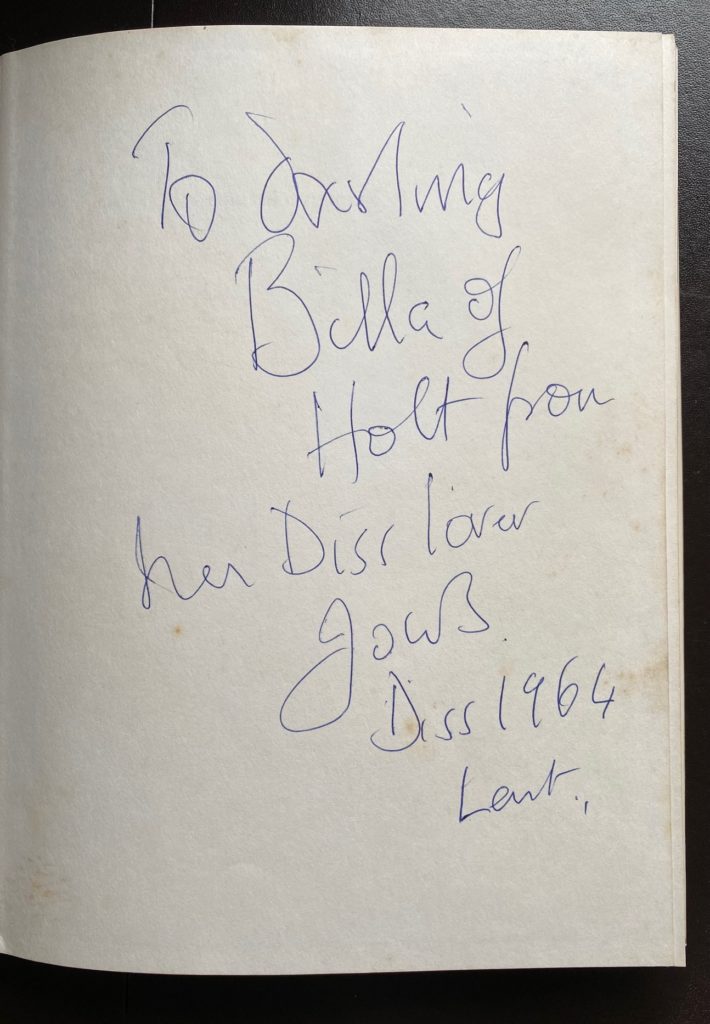 To darling
Billa of
Holt from
her Diss lover
John B.
Diss 1964
Lent.